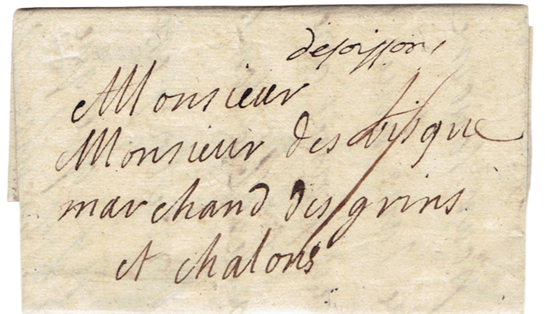 desoissons
Monsieur
Monsieur des
marchand des grins
et chalons